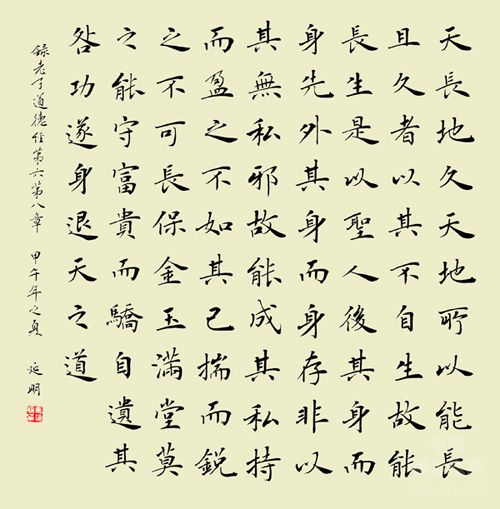 天長地久天地所以能長
且久者以其不自生故能
長生是以聖人後其身而
身先外其身而身存非以
其無私邪故能成其私持
而盈之不如其已揣而銳
之不可長保金玉滿堂莫
之能守富貴而驕自遺其
咎功遂身退天之道
錄老子道德經第六第八章 甲午年之夏 延明